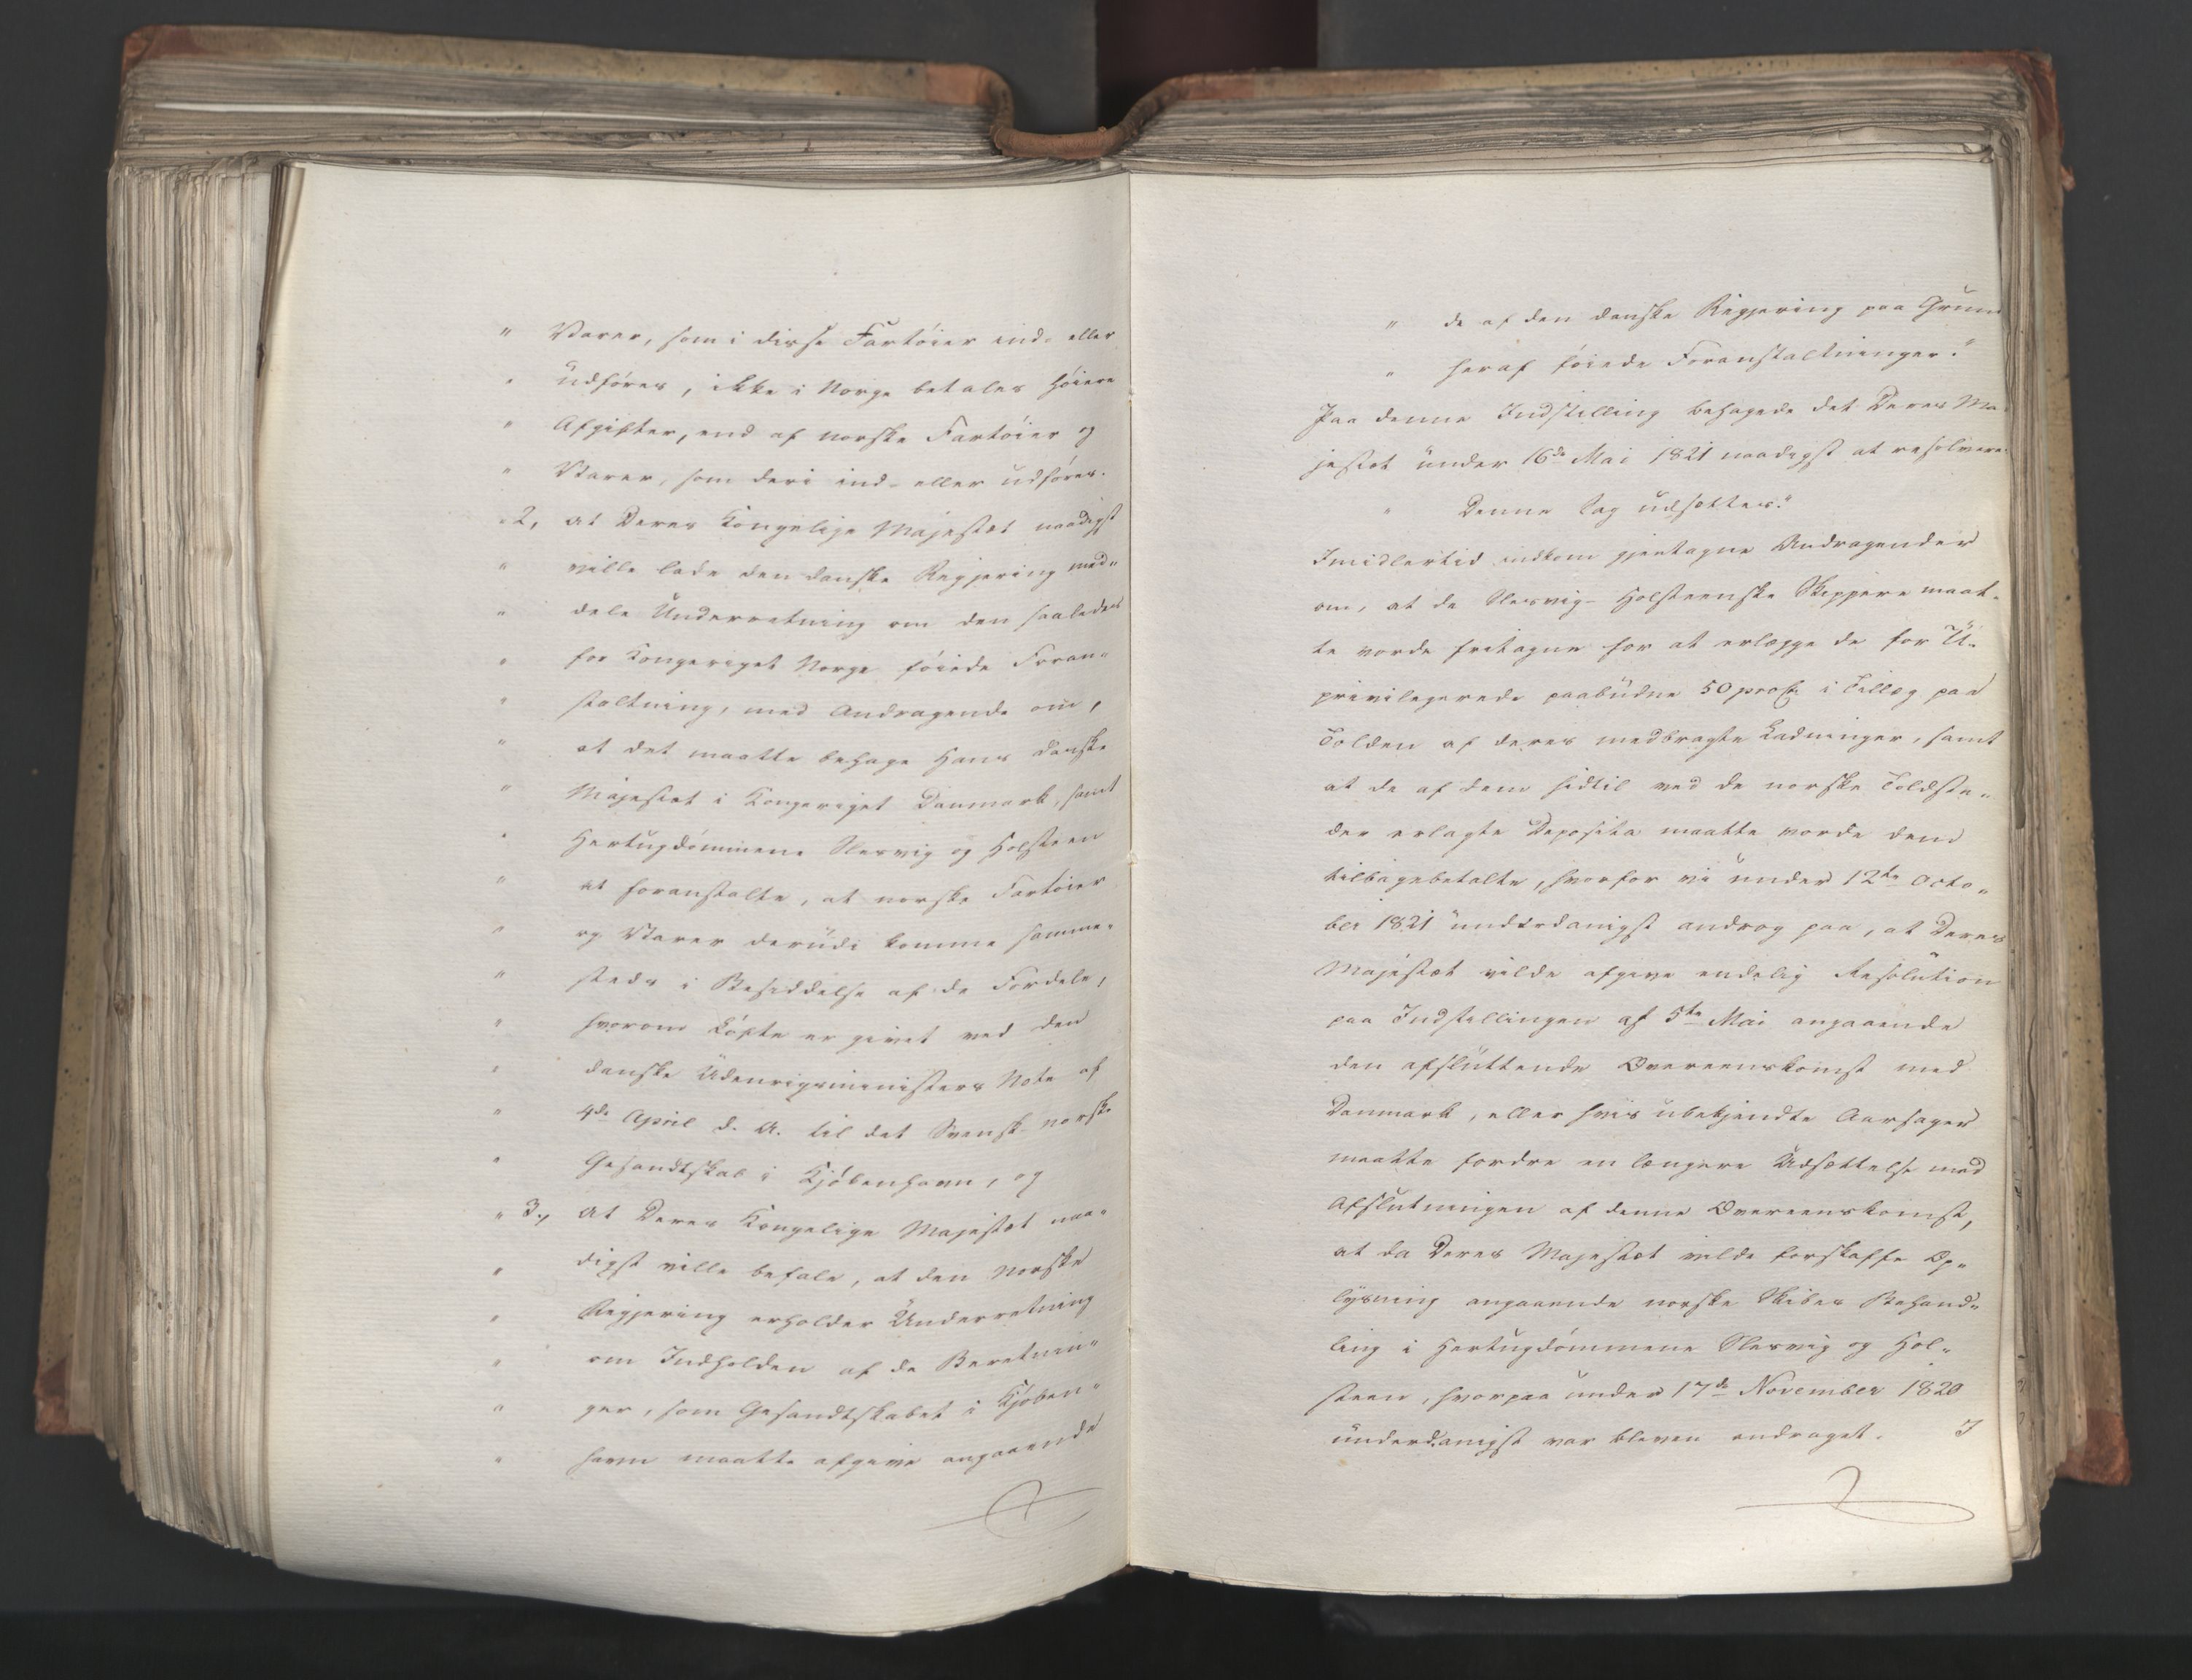 " Varer, som i disse Fartøier ind- eller
" udføres, ikke i Norge betales høiere
" Afgifter, end af norske Fartøier og
" Varer, som deri ind- eller udføres.
" 2, at Deres Kongelige Majestæt naadigst
" ville lade den danske Regjering med-
" dele Underretning om den saaledes
" for Kongeriget Norge føiede Foran-
" staltning, med Andragende om,
" at det maatte behage Hans danske
" Majestæt i Kongeriget Danmark, samt
" Hertugdømmene Slesvig og Holsteen
" at foranstalte, at norske Fartøier
" og Varer derudi komme samme-
" steds i Besiddelse af de Fordele,
" hvorom Løfte er givet ved den
" danske Udenrigsministers Note af
" 4de April d. A. til det Svensk-norske
" Gesandtskab i Kjøbenhavn, og
" 3., at Deres Kongelige Majestæt naa-
" digst ville befale, at den norske
" Regjering erholder Underretning
" om Indholden af de Beretnin-
" ger, som Gesandtskabet i Kjøben-
" havn maatte afgive angaaende
" de af den danske Regjering paa Grund
" heraf føiede Foranstaltninger."
Paa denne Indstilling behagede det Deres Ma-
jestæt under 16de Mai 1821 naadigst at resolvere:
" Denne Sag udsættes."
Imidlertid indkom gjentagne Andragender
om, at de Slesvig-Holsteenske Skippere maat-
te vorde fritagne for at erlægge de for U-
privilegerede paabudne 50 proCt. i Tillæg paa
Tolden af deres medbragte Ladninger, samt
at de af dem hidtil ved de norske Toldste-
der erlagte Deposita maatte vorde dem
tilbagebetalte, hvorfor vi under 12te Octo-
ber 1821 underdanigst androg paa, at Deres
Majestæt vilde afgive endelig Resolution
paa Indstillingen af 5te Mai angaaende
den afsluttende Overeenskomst med
Danmark, eller hvis ubekjendte Aarsager
maatte fordre en længere Udsættelse med
Afslutningen af denne Overeenskomst,
at da Deres Majestæt vilde forskaffe Op-
lysning angaaende norske Skibes Behand-
ling i Hertugdømmene Slesvig og Hol-
steen, hvorpaa under 17de November 1820
underdanigst var bleven andraget. I